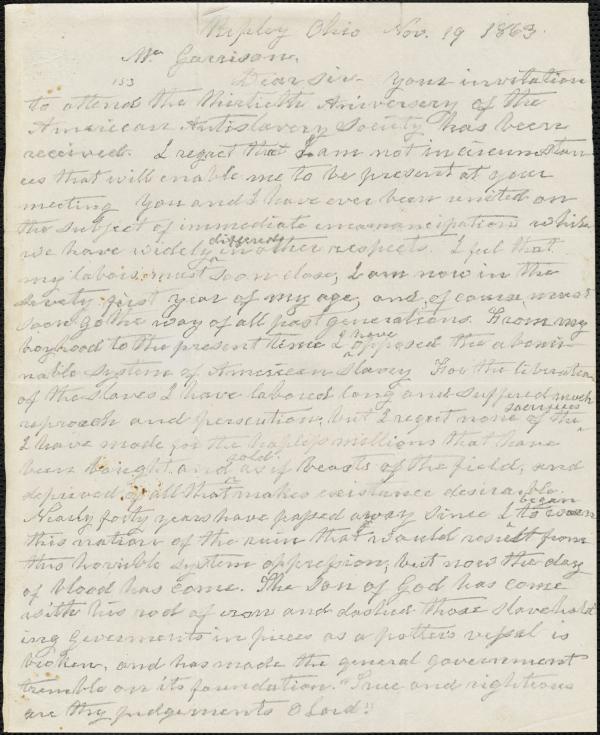 Ripley Ohio Nov. 19 1863.
Mr Garrison.
153
Dear sir- Your invitation
to attend the thirtieth Aniversery of the
American Antislavery Society has been
received. I regret that I am not in circumstan
ces that will enable me to be present at your
meeting You and I have ever been united on
the subject of immediate emancipation while
we have widely differed in other respects. I feel that
my labors must soon close, I am now in the
seventy first year of my age, and, of course, must
soon go the way of all past generations. From my
boyhood to the present time I have opposed the abomi
nable system of American slavery For the liberation
of the slaves I have labored long and suffered much
reproach and persecution, but I regret none of the sacrifices
I have made for the hapless millions that have
been bought and sold as if beasts of the field, and
deprived of all that makes existance desirable.
Nearly forty years have passed away since I began to warn
this nation of the ruin that would result from
this horrible system oppression, but now the day
of blood has come. The Son of God has come
with his rod of iron and dashed those slavehold
ing goverments in pieces as a potter's vessel is
broken, and has made the general government
tremble on its foundation. "True and righteous
are thy judgements O Lord."